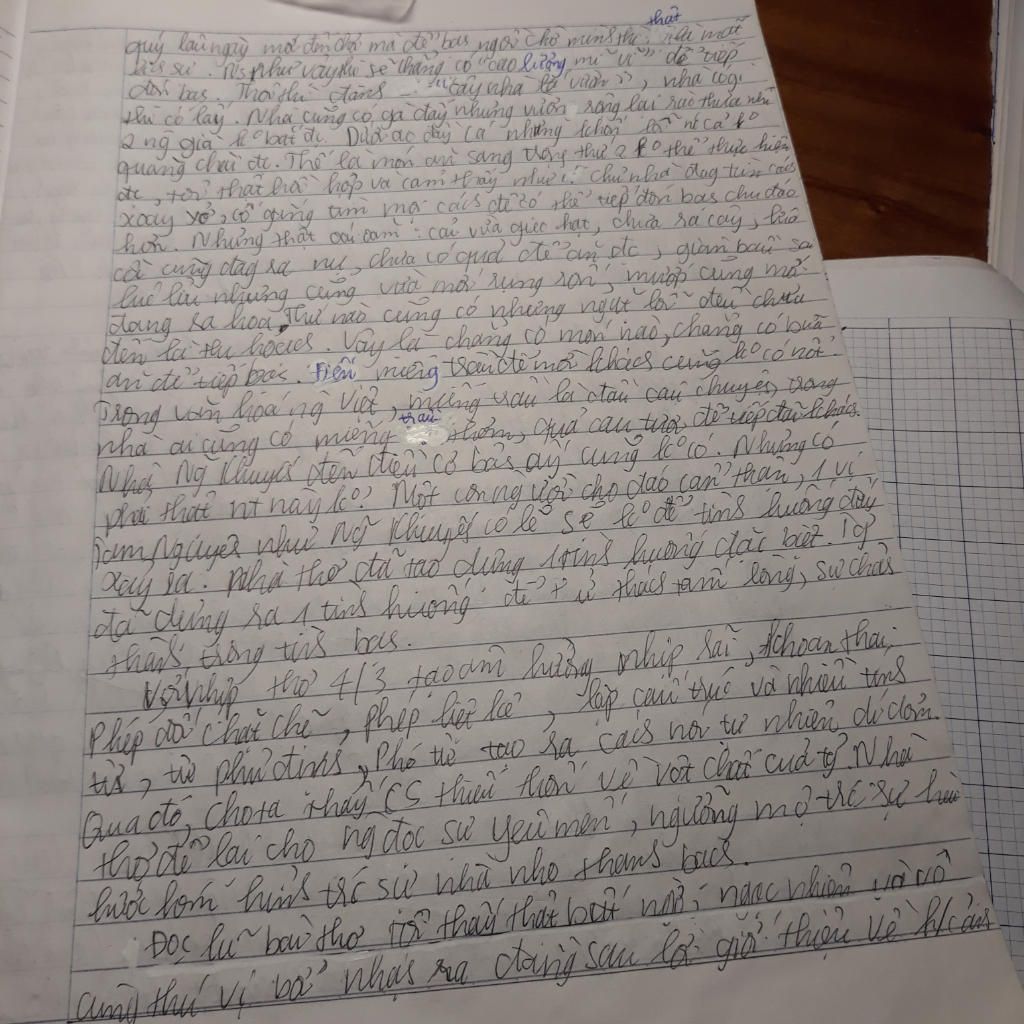 quý lâu ngày mới đến chơi mà để bạn ngồi chờ mình thì thật là mất
lịch sự. Nếu như vậy thì sẽ chẳng có "cao lương mĩ vị" để tiếp
đón bạn. Thôi thì đành "cây nhà lá vườn", nhà có gì
thì có lấy. Nhà cũng có gà đấy nhưng vườn rộng lại rào thưa nên
2 ng già k° bắt đc. Dưới ao đầy cá nhưng khốn lỗi nc cả k°
quăng chài đc. Thế là món ăn sang trọng thứ 2 k° thể thực hiện
đc, tôi thật hồi hộp và cảm thấy như chủ nhà đag tìm cách
xoay xở, cố gắng tìm mọi cách để có thể tiếp đón bạn chu đáo
hơn. Nhưng thật oái oăm: cải vừa gieo hạt, chưa ra cây, bầu
cà cũng đag ra nụ, chưa có quả để ăn đc, giàn bầu sai
lúc lỉu nhưng cũng vừa mới rụng rốn, mướp cũng mới
đang ra hoa. Thứ nào cũng có nhưng ngặt lỗi đều chưa
đến là thu hoạch. Vậy là chẳng có món nào, chẳng có bữa
ăn để tiếp bạn. Đến miếng trầu để mời khách cũng k° có nốt.
Trong văn hóa ng Việt, miếng trầu là đầu câu chuyện, trong
nhà ai cũng có miếng trầu thơm, quả cau tươi, để tiếp đãi khách.
Nhà Ng Khuyến đến điều cơ bản ấy cũng k° có. Nhưng có
phải thật nt này k°? Một con người chu đáo cẩn thận, 1 vị
Tam Nguyên như Ng Khuyến có lẽ sẽ k° để tình huống đấy
xảy ra. Nhà thơ đã tạo dựng 1 tình huống đặc biệt. Tg
đã dựng ra 1 tình huống để thử thách tấm lòng, sự chân
thành, trong tình bạn.
Với nhịp thơ 4/3 tạo âm hưởng nhịp rãi, khoan thai,
phép đối chặt chẽ, phép liệt kê, lặp cấu trúc và nhiều tính
từ, từ phủ định, phó từ tạo ra cách nói tự nhiên dí dỏm.
Qua đó, cho ta thấy CS thiếu thốn về vật chất của tg. Nhà
thơ để lại cho ng đọc sự yêu mến, ngưỡng mộ trc sự hài
hước hóm hỉnh trc sự nhà nho thanh bạch.
Đọc lũ bài thơ, tôi thấy thật bất ngờ, ngạc nhiên và vô
cùng thú vị bởi nhận ra đằng sau lời giới thiệu về h/cảnh